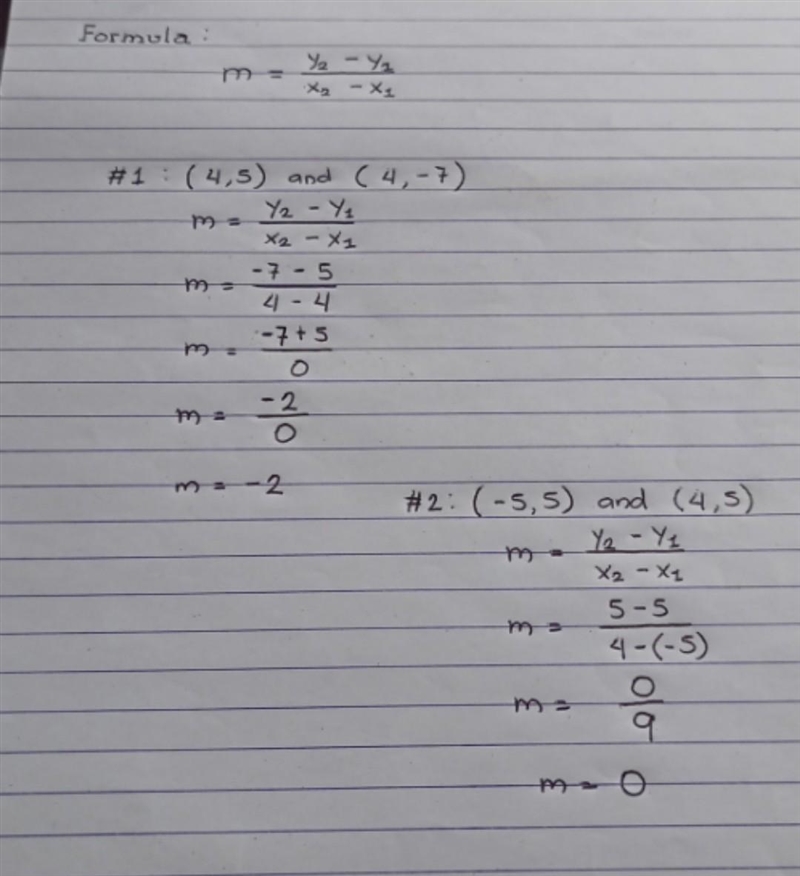 Formula:
m = y₂ - y₁ / x₂ - x₁
#1 : (4,5) and (4,-7)
m = y₂ - y₁ / x₂ - x₁
m = -7 - 5 / 4 - 4
m = -7+5 / 0
m = -2 / 0
m = -2
#2: (-5,5) and (4,5)
m = y₂ - y₁ / x₂ - x₁
m = 5-5 / 4-(-5)
m = 0 / 9
m = 0